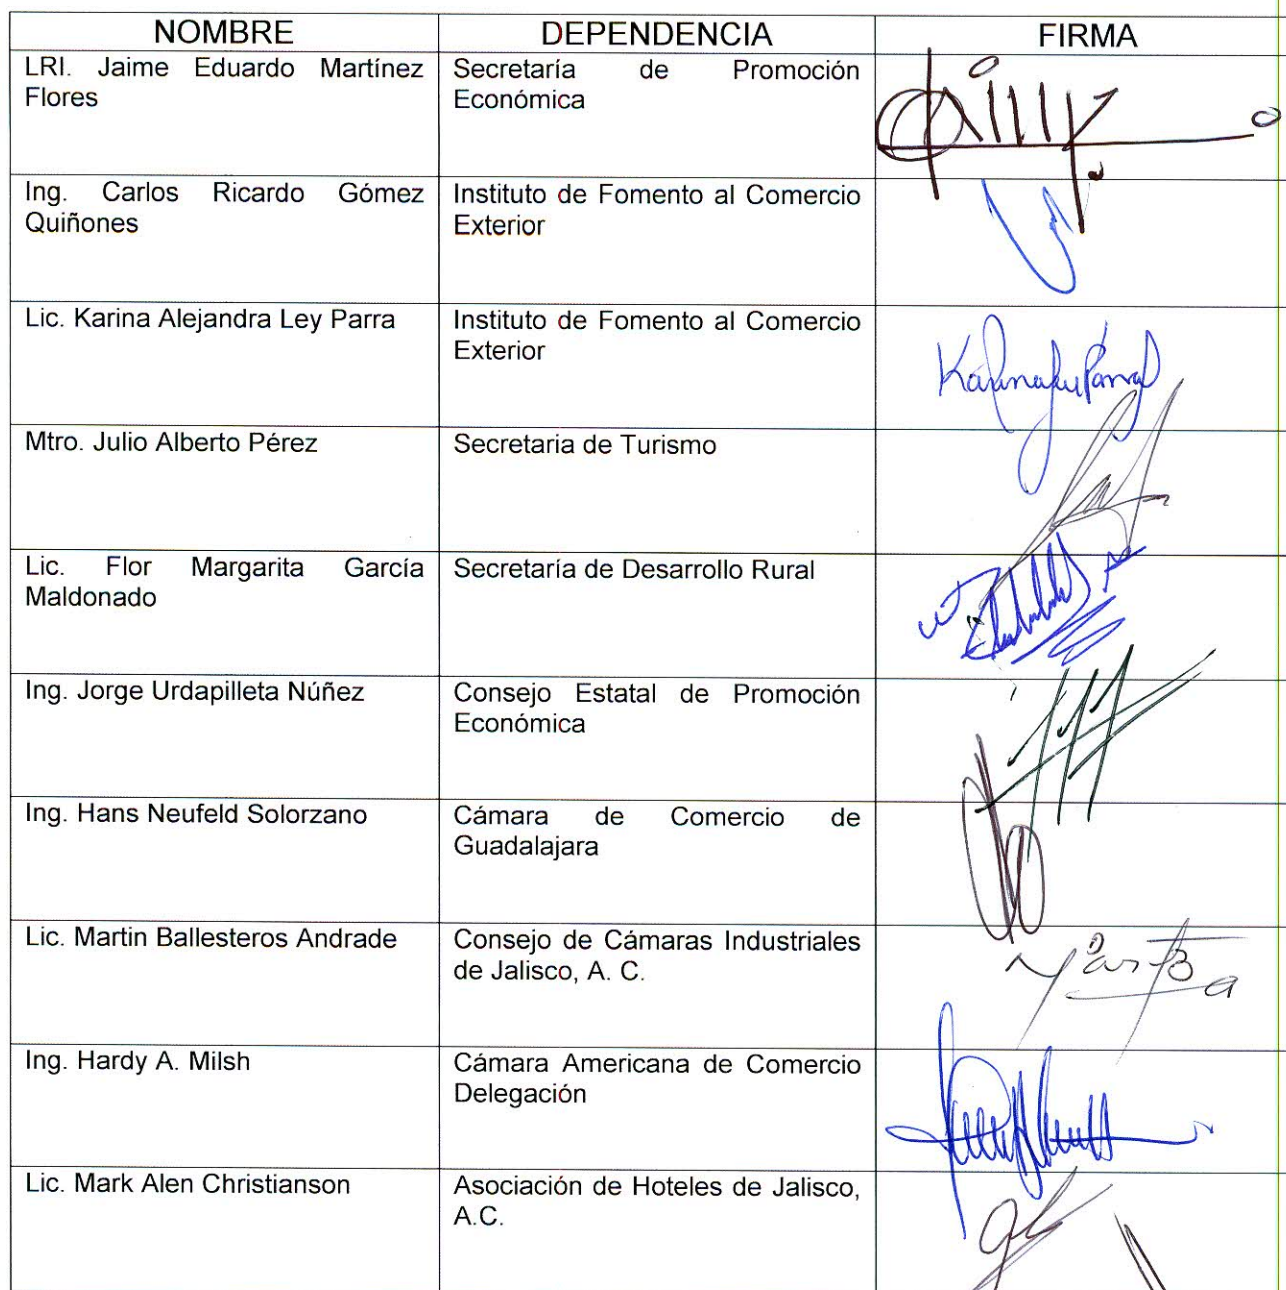 NOMBRE DEPENDENCIA FIRMA
LRI. Jaime Eduardo Martínez Secretaría de Promoción
Flores Económica
Ing. Carlos Ricardo Gómez Instituto de Fomento al Comercio
Quiñones Exterior
Lic. Karina Alejandra Ley Parra Instituto de Fomento al Comercio
Exterior
Mtro. Julio Alberto Pérez Secretaria de Turismo
Lic. Flor Margarita García Secretaría de Desarrollo Rural
Maldonado
Ing. Jorge Urdapilleta Núñez Consejo Estatal de Promoción
Económica
Ing. Hans Neufeld Solorzano Cámara de Comercio de
Guadalajara
Lic. Martin Ballesteros Andrade Consejo de Cámaras Industriales
de Jalisco, A. C.
Ing. Hardy A. Milsh Cámara Americana de Comercio
Delegación
Lic. Mark Alen Christianson Asociación de Hoteles de Jalisco,
A.C.